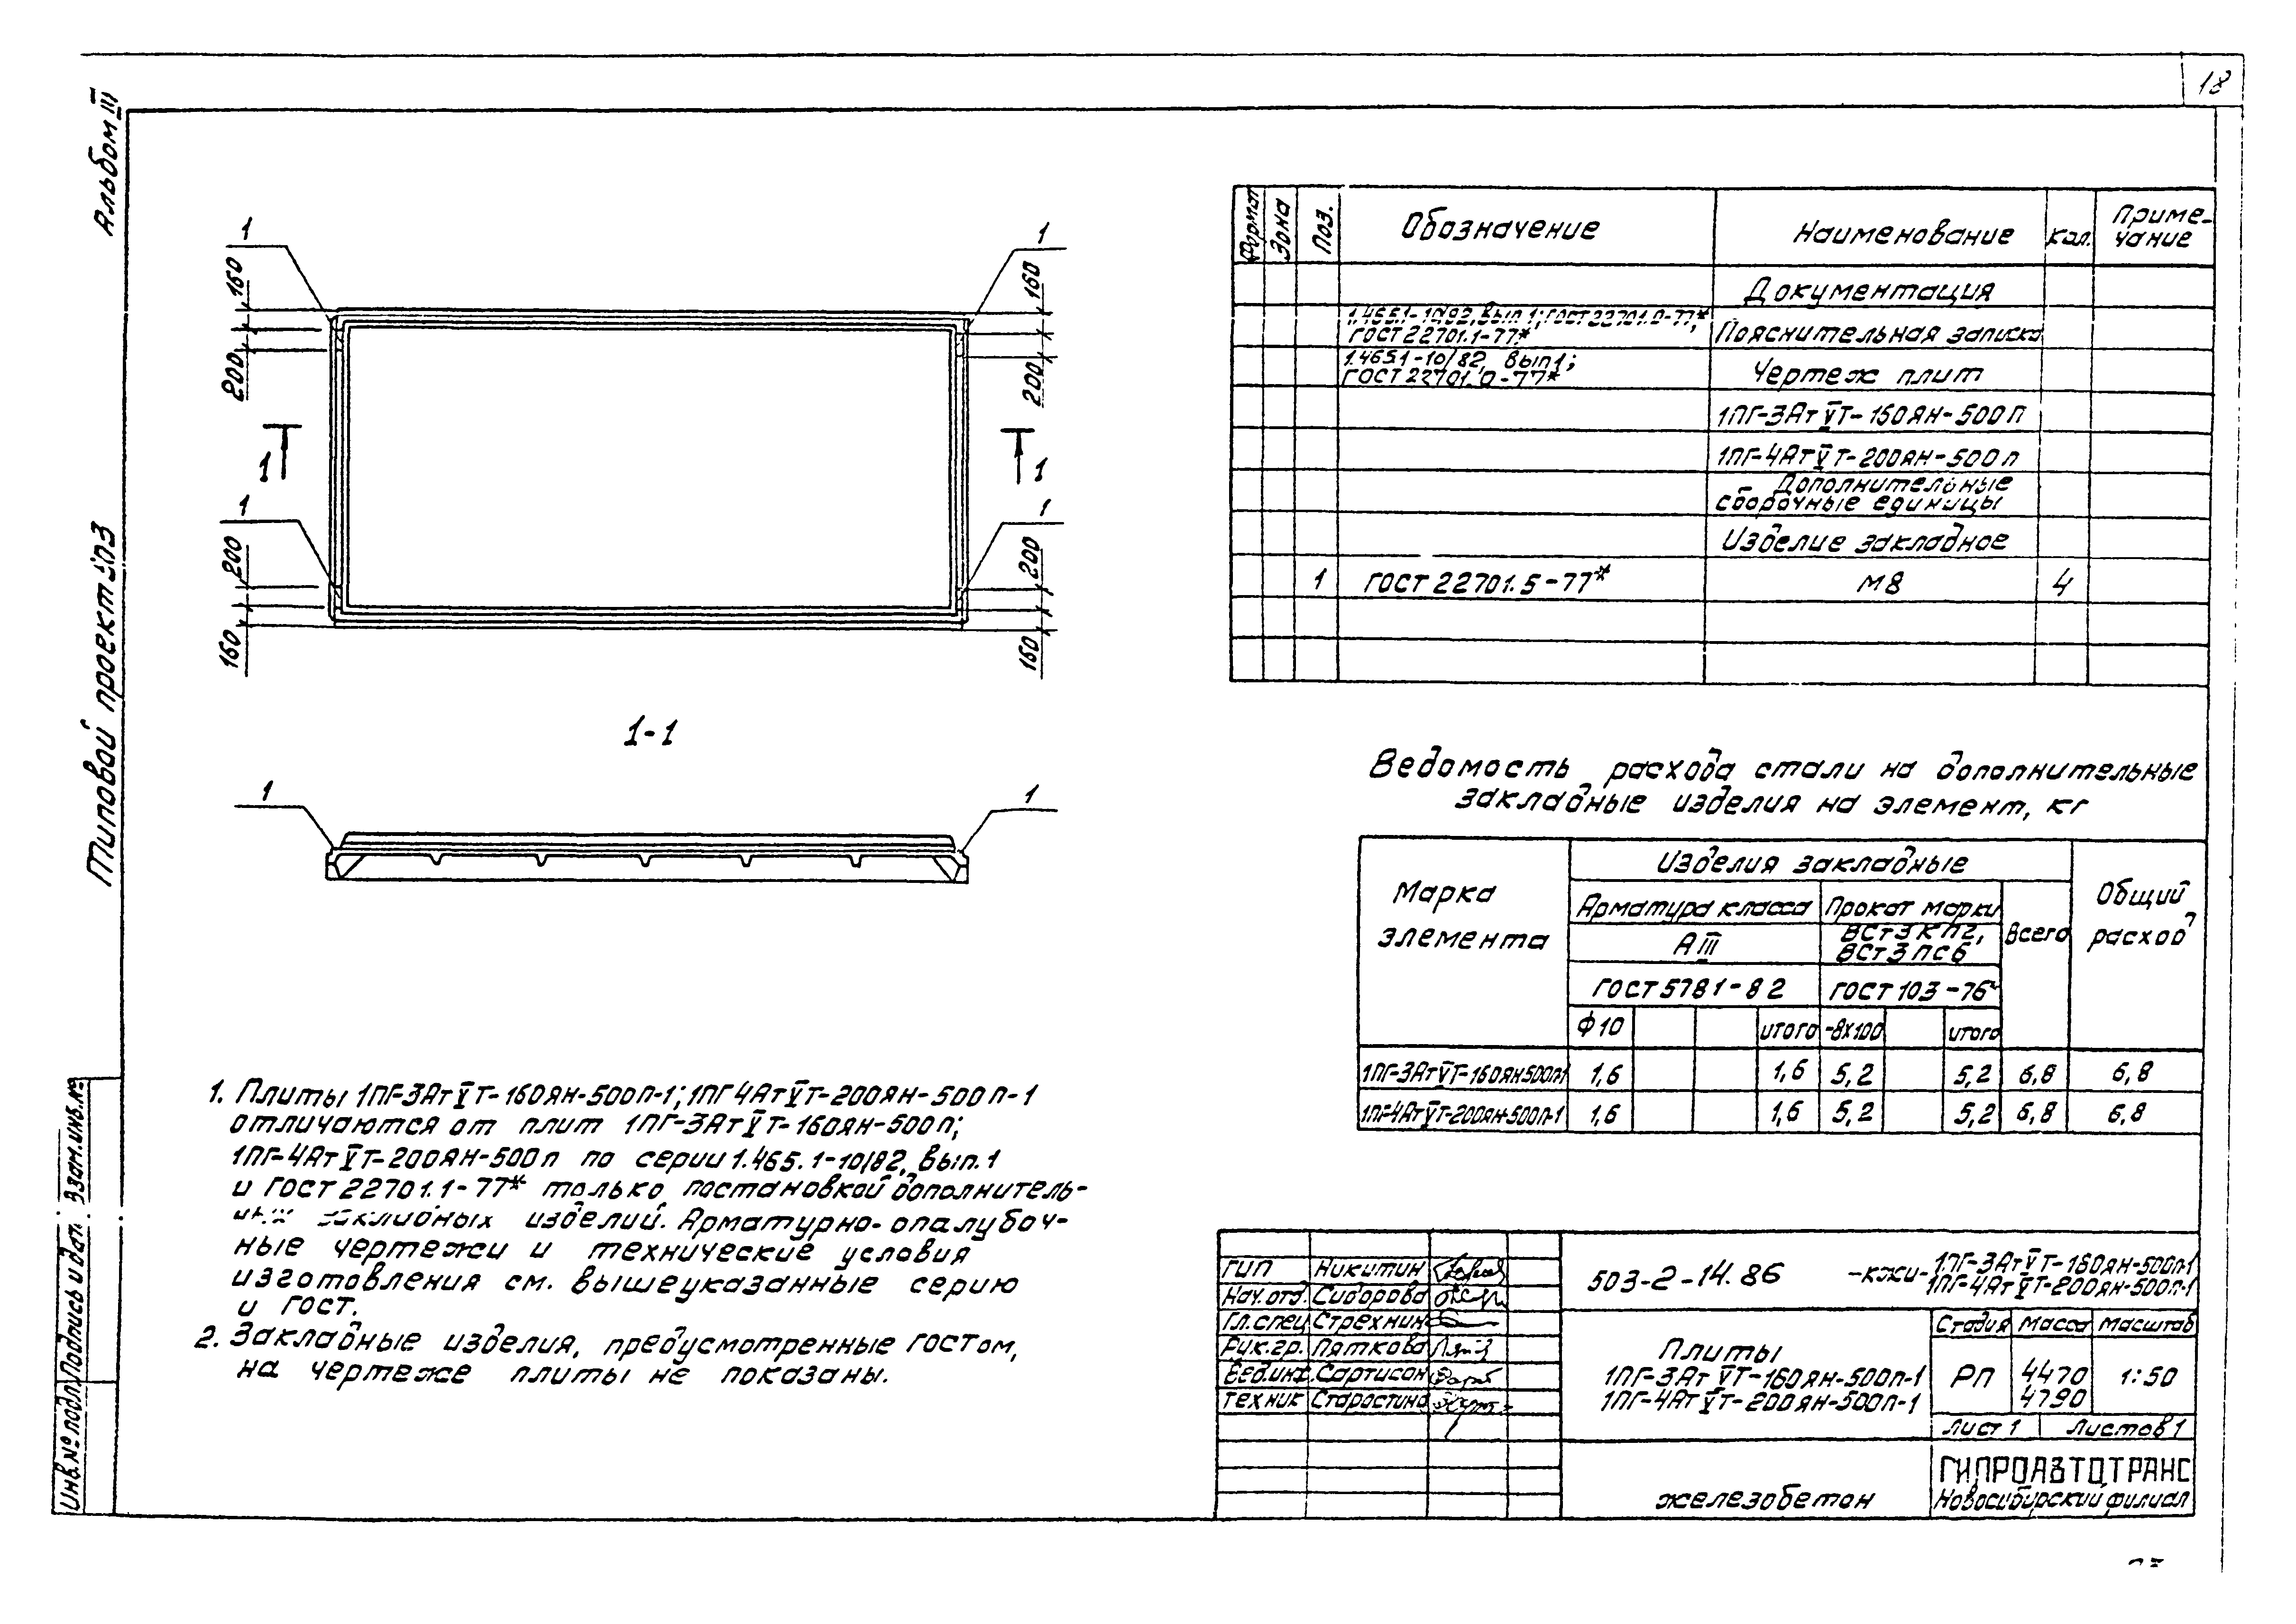 18
Альбом III
Типовой проект
Инв.№ подл. Подпись и дата Взам.инв.№
1
1
160
160
200
200
1
1
1
1
200
200
160
160
1-1
1
1
1. Плиты 1ПГ-3АтVТ-160ЯН-500П-1; 1ПГ4АтVТ-200ЯН-500П-1
отличаются от плит 1ПГ-3АтVТ-160ЯН-500П;
1ПГ-4АтVТ-200ЯН-500П по серии 1.465.1-10/82, вып.1
и ГОСТ 22701.1-77* только постановкой дополнитель-
ных закладных изделий. Арматурно-опалубоч-
ные чертежи и технические условия
изготовления см. вышеуказанные серию
и ГОСТ.
2. Закладные изделия, предусмотренные ГОСТом,
на чертеже плиты не показаны.
Формат Зона Поз. Обозначение Наименование Кол. Приме-
чание
Документация
1.465.1-10/82, вып 1; ГОСТ 22701.0-77*;
ГОСТ 22701.1-77* Пояснительная записка
1.465.1-10/82, вып 1;
ГОСТ 22701.0-77* Чертеж плит
1ПГ-3АтVТ-160ЯН-500П
1ПГ-4АтVТ-200ЯН-500П
Дополнительные
сборочные единицы
Изделие закладное
1 ГОСТ 22701.5-77* М8 4
Ведомость расхода стали на дополнительные
закладные изделия на элемент, кг
Марка
элемента
Изделия закладные
Общий
расход
Арматура класса Прокат марки Всего
АIII ВСт3кп2,
ВСт3пс6
ГОСТ 5781-82 ГОСТ 103-76*
Ф10 Итого -8х100 Итого
1ПГ-3АтVТ-160ЯН500П-1 1,6 1,6 5,2 5,2 6,8 6,8
1ПГ-4АтVТ-200ЯН-500П-1 1,6 1,6 5,2 5,2 6,8 6,8
ГИП Никитин
Нач.отд. Сидорова
Гл.спец Стрехнин
Рук.гр. Пяткова
Вед.инж Сартисон
Техник Старостина
503-2-14.86 -КЖИ- 1ПГ-3АтVТ-160ЯН-500П-1
1ПГ-4АтVТ-200ЯН-500П-1
Плиты
1ПГ-3АтVТ-160ЯН-500П-1
1ПГ-4АтVТ-200ЯН-500П-1
Стадия Масса Масштаб
РП 4470
4790 1:50
Лист 1 Листов 1
железобетон
ГИПРОАВТОТРАНС
Новосибирский филиал